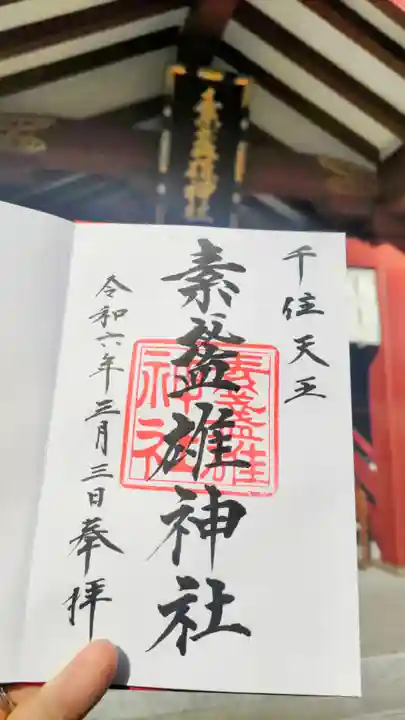 素盞雄神社
千住天王
素盞雄神社
素盞雄神社
令和六年三月三日奉拝